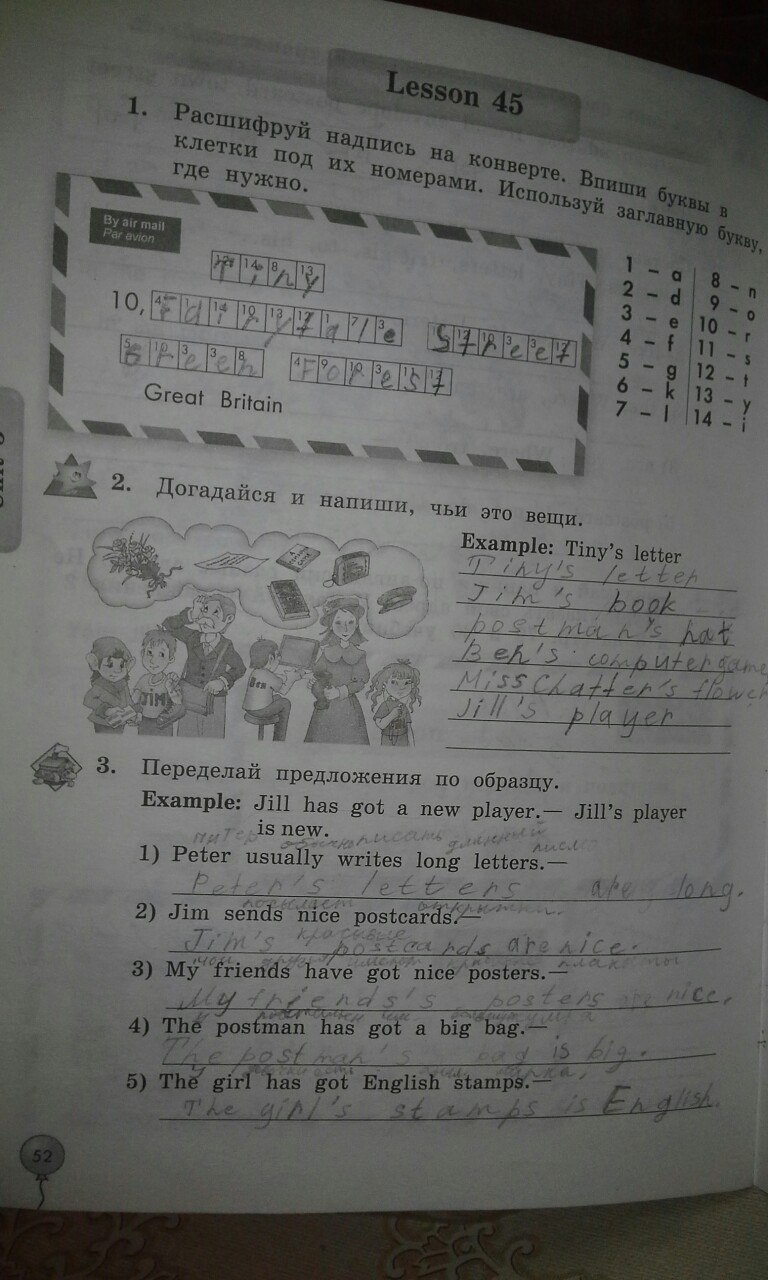 Lesson 45
1. Расшифруй надпись на конверте. Впиши буквы в
клетки под их номерами. Используй заглавную букву,
где нужно.
By air mail
Par avion
Tiny
10, Fairytale Street
Green Forest
Great Britain
1 – a 8 – n
2 – d 9 – o
3 – e 10 – r
4 – f 11 – s
5 – g 12 – t
6 – k 13 – y
7 – l 14 – i
2. Догадайся и напиши, чьи это вещи.
Example: Tiny's letter
Tiny's letter
Jim's book
postman's hat
Ben's computer game
Miss Chatter's flower
Jill's player
JIM
Ben
3. Переделай предложения по образцу.
Example: Jill has got a new player.— Jill's player
is new.
питер обычно писать длинный письмо
1) Peter usually writes long letters.—
Peter's letters are long.
посылает открытки.
2) Jim sends nice postcards.—
красивые
Jim's postcards are nice.
мои друзья имеют плакаты
3) My friends have got nice posters.—
My friends's posters are nice.
4) The postman has got a big bag.—
The postman's bag is big.
5) The girl has got English stamps.—
The girl's stamps is English.
52